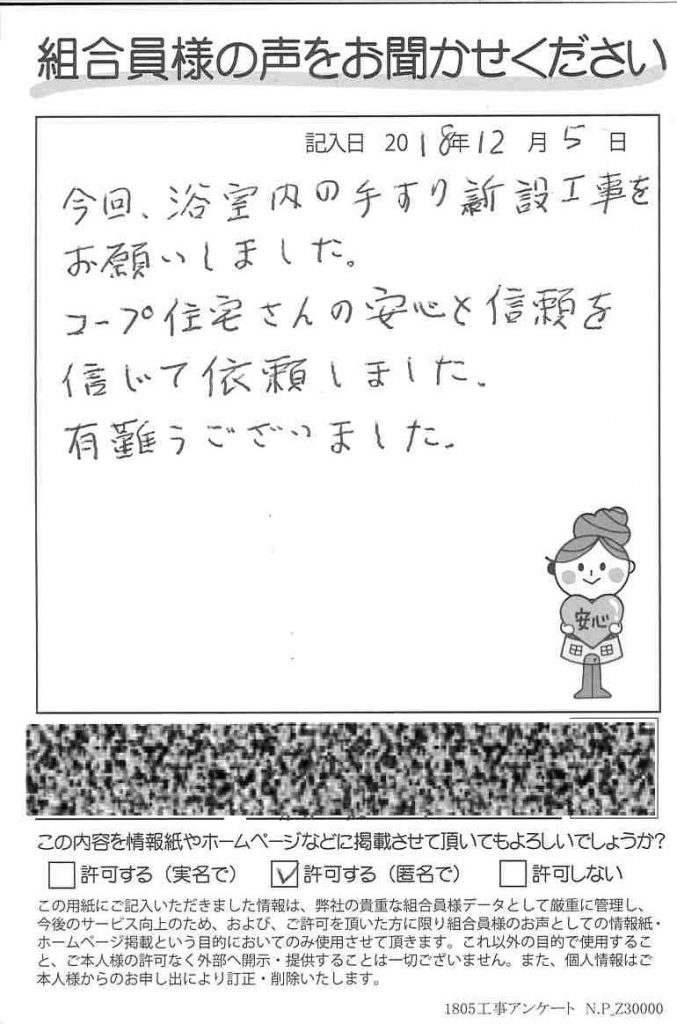 組合員様の声をお聞かせください
記入日 2018年12月5日
今回、浴室内の手すり新設工事を
お願いしました。
コープ住宅さんの安心と信頼を
信じて依頼しました。
有難うございました。
安心
この内容を情報紙やホームページなどに掲載させて頂いてもよろしいでしょうか?
許可する（実名で） 許可する（匿名で） 許可しない
この用紙にご記入いただきました情報は、弊社の貴重な組合員様データとして厳重に管理し、
今後のサービス向上のため、および、ご許可を頂いた方に限り組合員様のお声としての情報紙・
ホームページ掲載という目的においてのみ使用させて頂きます。これ以外の目的で使用するこ
と、ご本人様の許可なく外部へ開示・提供することは一切ございません。また、個人情報はご
本人様からのお申し出により訂正・削除いたします。
1805工事アンケート N.P_Z30000